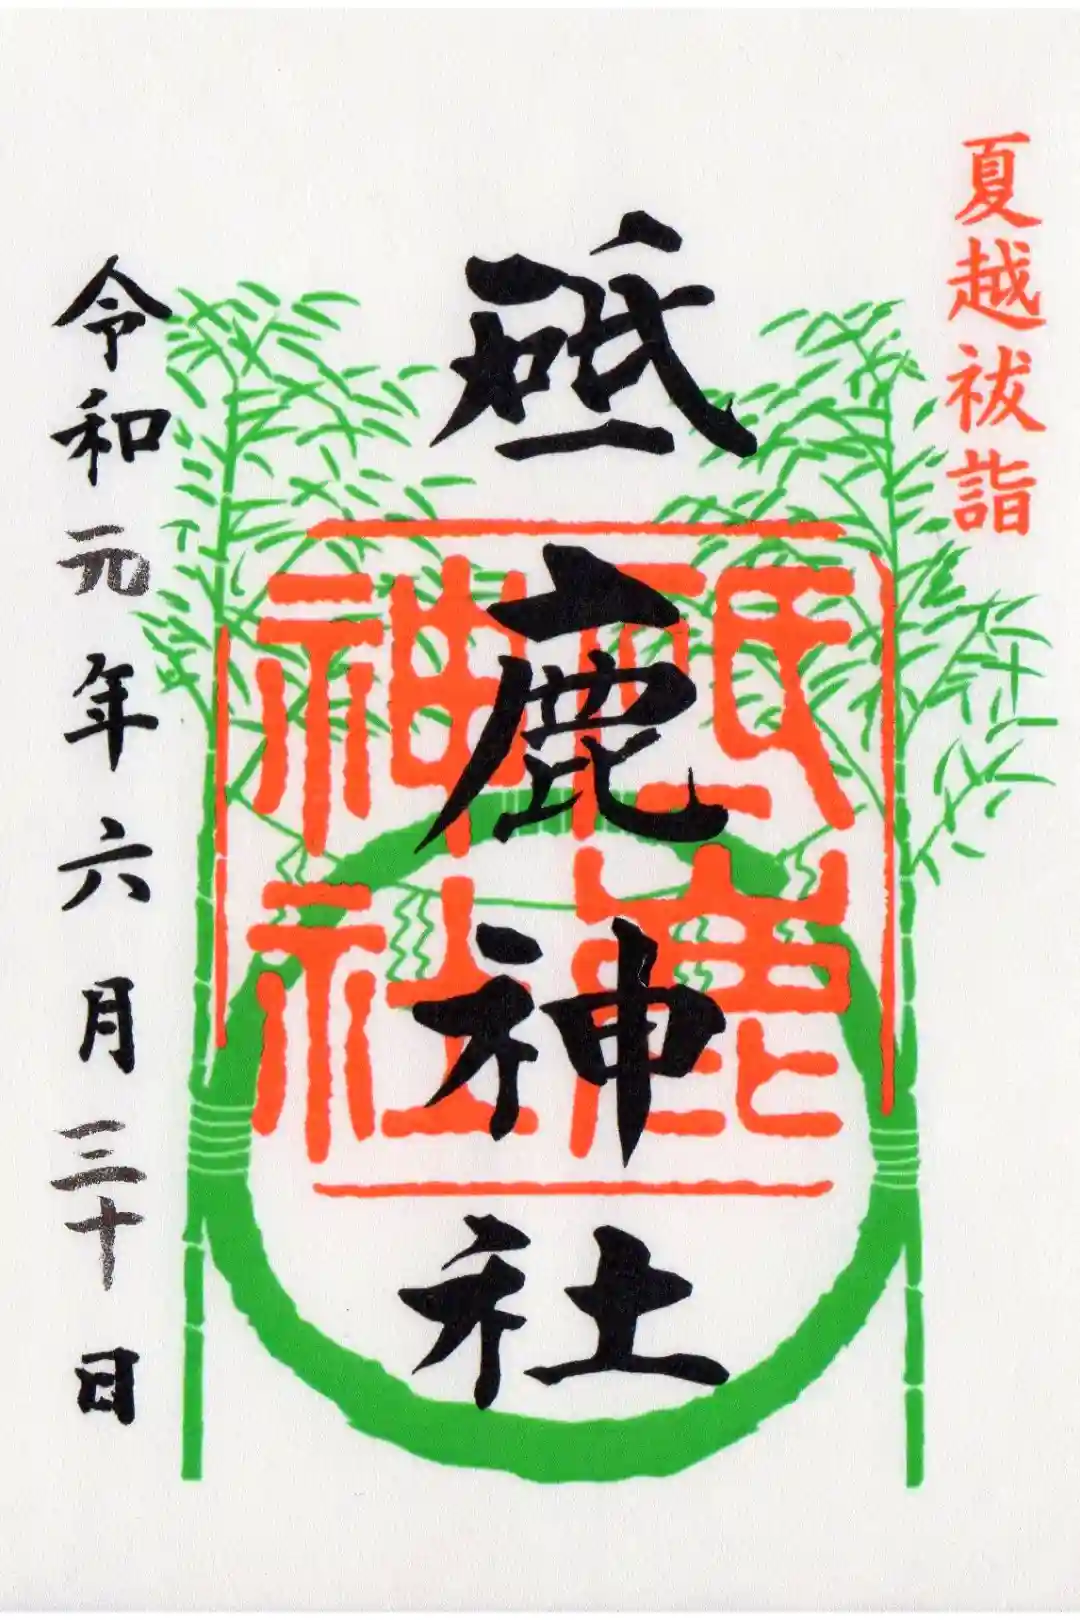 夏越祓詣
砥鹿神社
砥鹿
神社
令和元年六月三十日